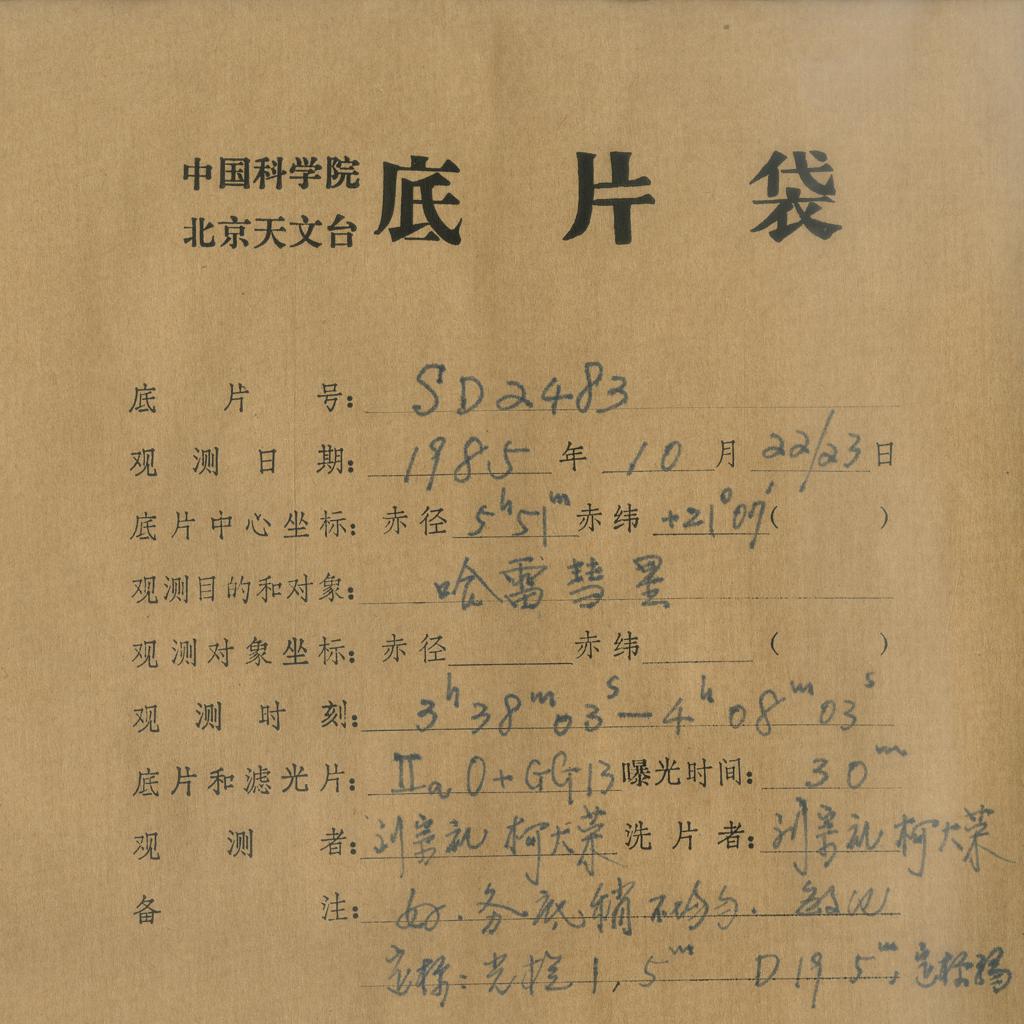 中国科学院
北京天文台
底片袋
底片号: SD2483
观测日期: 1985年10月22/23日
底片中心坐标: 赤径 5ʰ51ᵐ 赤纬 +21°07′( )
观测目的和对象: 哈雷彗星
观测对象坐标: 赤径 赤纬 ( )
观测时刻: 3ʰ38ᵐ03ˢ—4ʰ08ᵐ03ˢ
底片和滤光片: IIaO+GG13 曝光时间: 30ᵐ
观测者: 刘宗礼 柯大荣 洗片者: 刘宗礼 柯大荣
备注: 好.雾底稍不均匀.
定标:光楔1,5ᵐ D19 5ᵐ,定标